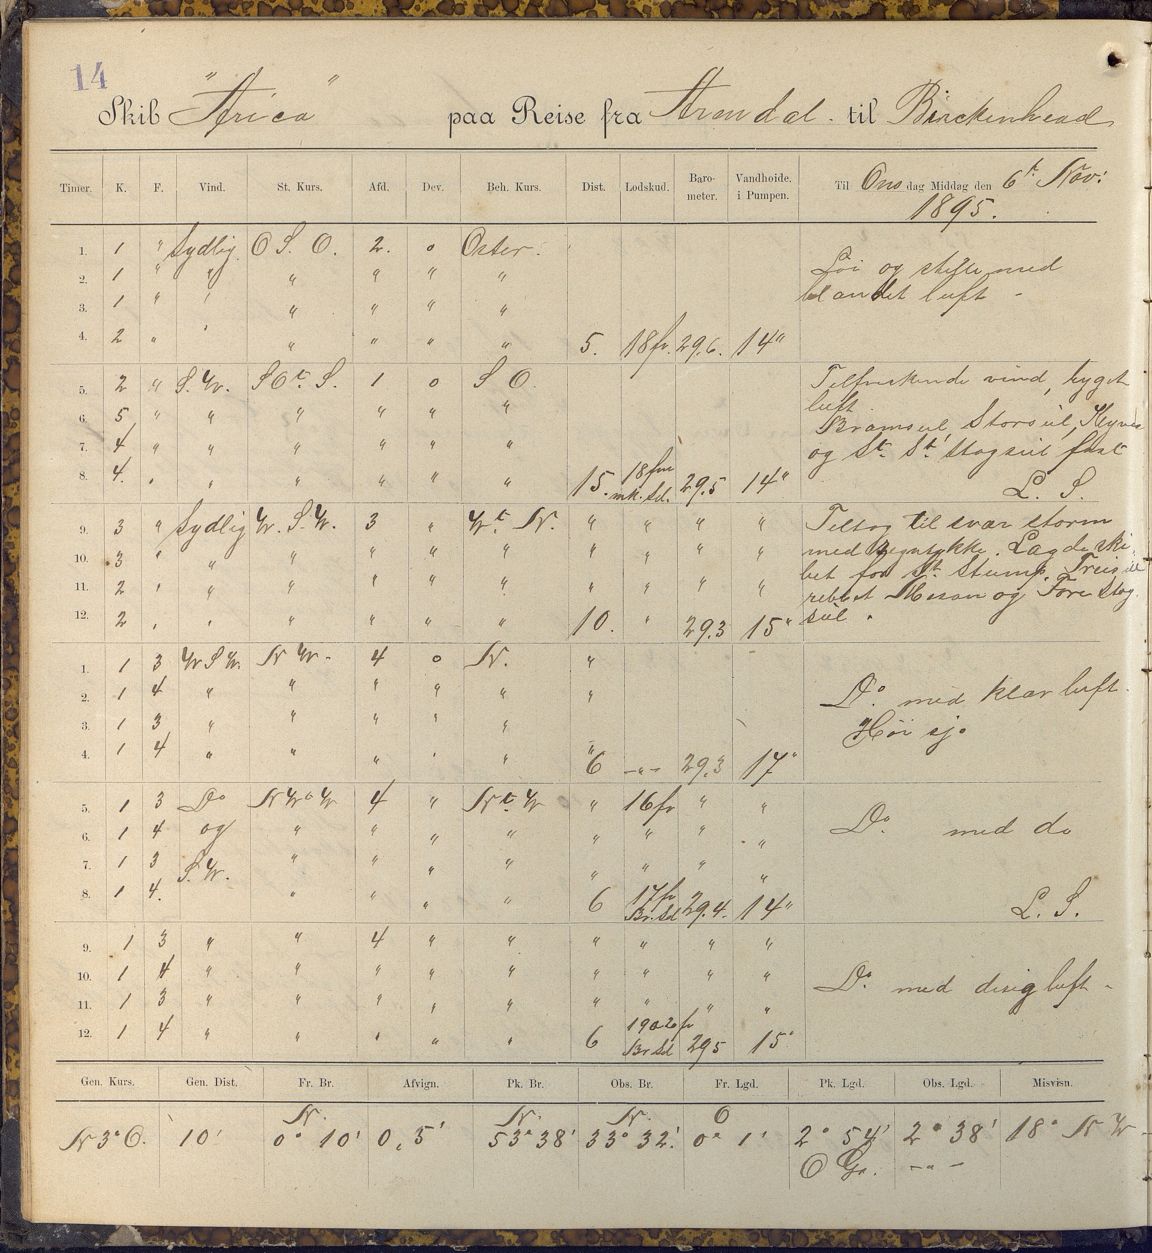 14
Skib "Arica" paa Reise fra Arendal. til Birckenhead
Timer. K. F. Vind. St. Kurs. Afd. Dev. Beh. Kurs. Dist. Lodskud. Baro-meter. Vandhoide. i Pumpen. Til Onsdag Middag den 6te Nov: 1895.
1. 1 " Sydlig O S. O. 2. 0 Oster.
2. 1 " " " " " "
Løi og stille med
3. 1 " ' " " " "
blandet luft -
4. 2 " ' " " " " 5. 18 fv. 29.6. 14"
5. 2 " S. W. S Ot. S. 1 0 S O.
Telfriskende vind, bygct
luft.
6. 5 " " " " " "
Bramseil, Storseil, Klyver
7. 4 " " " " " "
og St. St. Stagseil fast
8. 4. " " " " " " 15. 18 fvn mk. Sd. 29.5 14"
L. S.
9. 3 " Sydlig W. S. W. 3 " Wt. N. " " " "
Teltog til svær storm
10. 3 " " " " " " " " " "
med regntykke. Lagde ski-
bet for St. Stump, Treiseil
11. 2 " " " " " " " " " "
rebbet Mesan og Fore Stag
12. 2 " " " " " " 10. " 29.3 15"
seil.
1. 1 3 W S W. N W. 4 0 N. "
2. 1 4 " " " " " "
Do. med klar luft.
3. 1 3 " " " " "
Høi sjø
4. 1 4 " " " ' " " 6 -"- 29.3 17"
5. 1 3 Do N W t W 4 " N t. W " 16 fv " "
6. 1 4 og " " " " " " " "
Do. med do
7. 1 3 S. W. " " " " " " " "
8. 1 4. " " " " 6 17 fv Br. Sd 29.4. 14"
L. S.
9. 1 3 " " 4 " " " " " "
10. 1 4 " " " " " " " " "
Do. med disig luft -
11. 1 3 " " " " " " " " "
12. 1 4 " " " " " 6 19 a 20 fv Br. Sd 29 5 15"
Gen. Kurs. Gen. Dist. Fr. Br. Afvign. Pk. Br. Obs. Br. Fr. Lgd. Pk. Lgd. Obs. Lgd. Misvisn.
N. N. N. O
N 3° O. 10' 0° 10' 0,5' 53° 38' 33° 32'. 0° 1' 2° 54' 2° 38' 18° N W
O Gr. -"-